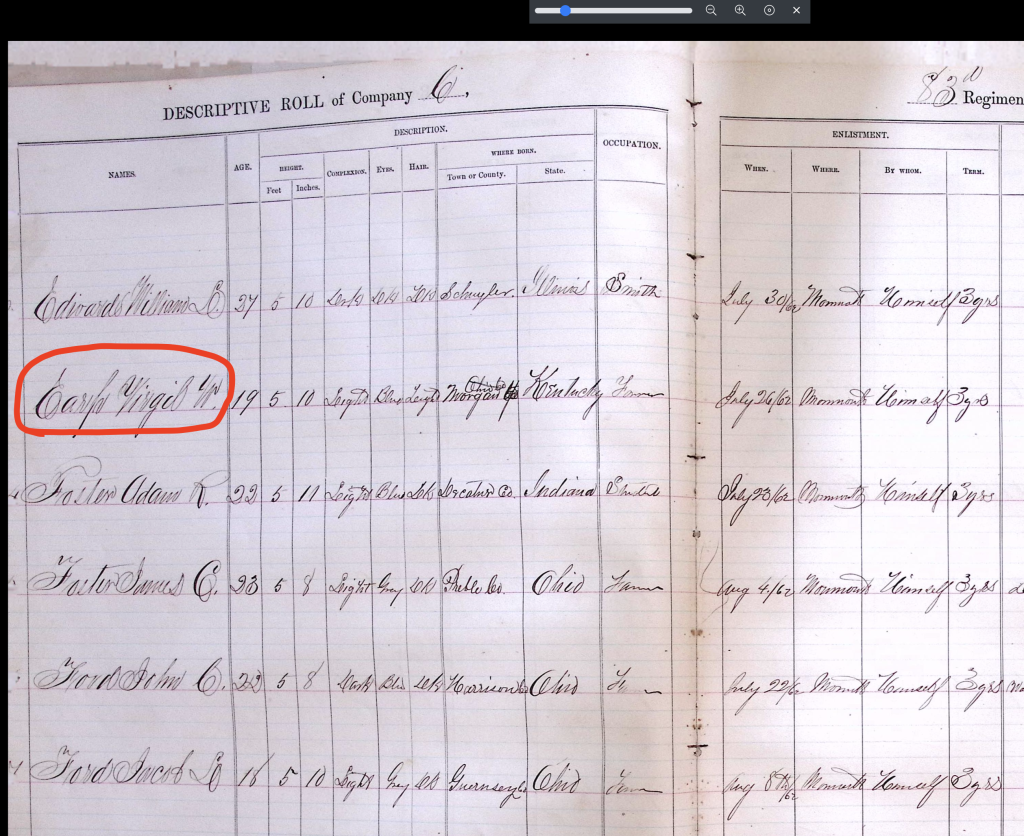 DESCRIPTIVE ROLL of Company C,
83d Regimen
DESCRIPTION.
ENLISTMENT.
NAMES. AGE. HEIGHT. COMPLEXION. EYES. HAIR. WHERE BORN. OCCUPATION. WHEN. WHERE. BY WHOM. TERM.
Feet Inches. Town or County. State.
Edwards William 27 5 10 Dark Dk Dk Schuyler. Illinois Smith July 30/62 Monmouth Himself 3 yrs
Earp Virgil W. 19 5 10 Light Blue Light Morgan Kentucky Farmer July 26/62 Monmouth Himself 3 yrs
Foster Adam R. 22 5 11 Light Blue Dk Decatur Co. Indiana July 23/62 Monmouth Himself 3 yrs
Foster James C. 23 5 8 Light Grey Dk Preble Co. Ohio Farmer Aug 4/62 Monmouth Himself 3 yrs
Ford John C. 22 5 8 Dark Blue Dk Harrison Co Ohio July 22/62 Monmouth Himself 3 yrs
Ford Jacob 18 5 10 Light Grey Dk Guernsey Co Ohio Farmer Aug 8th/62 Monmouth Himself 3 yrs